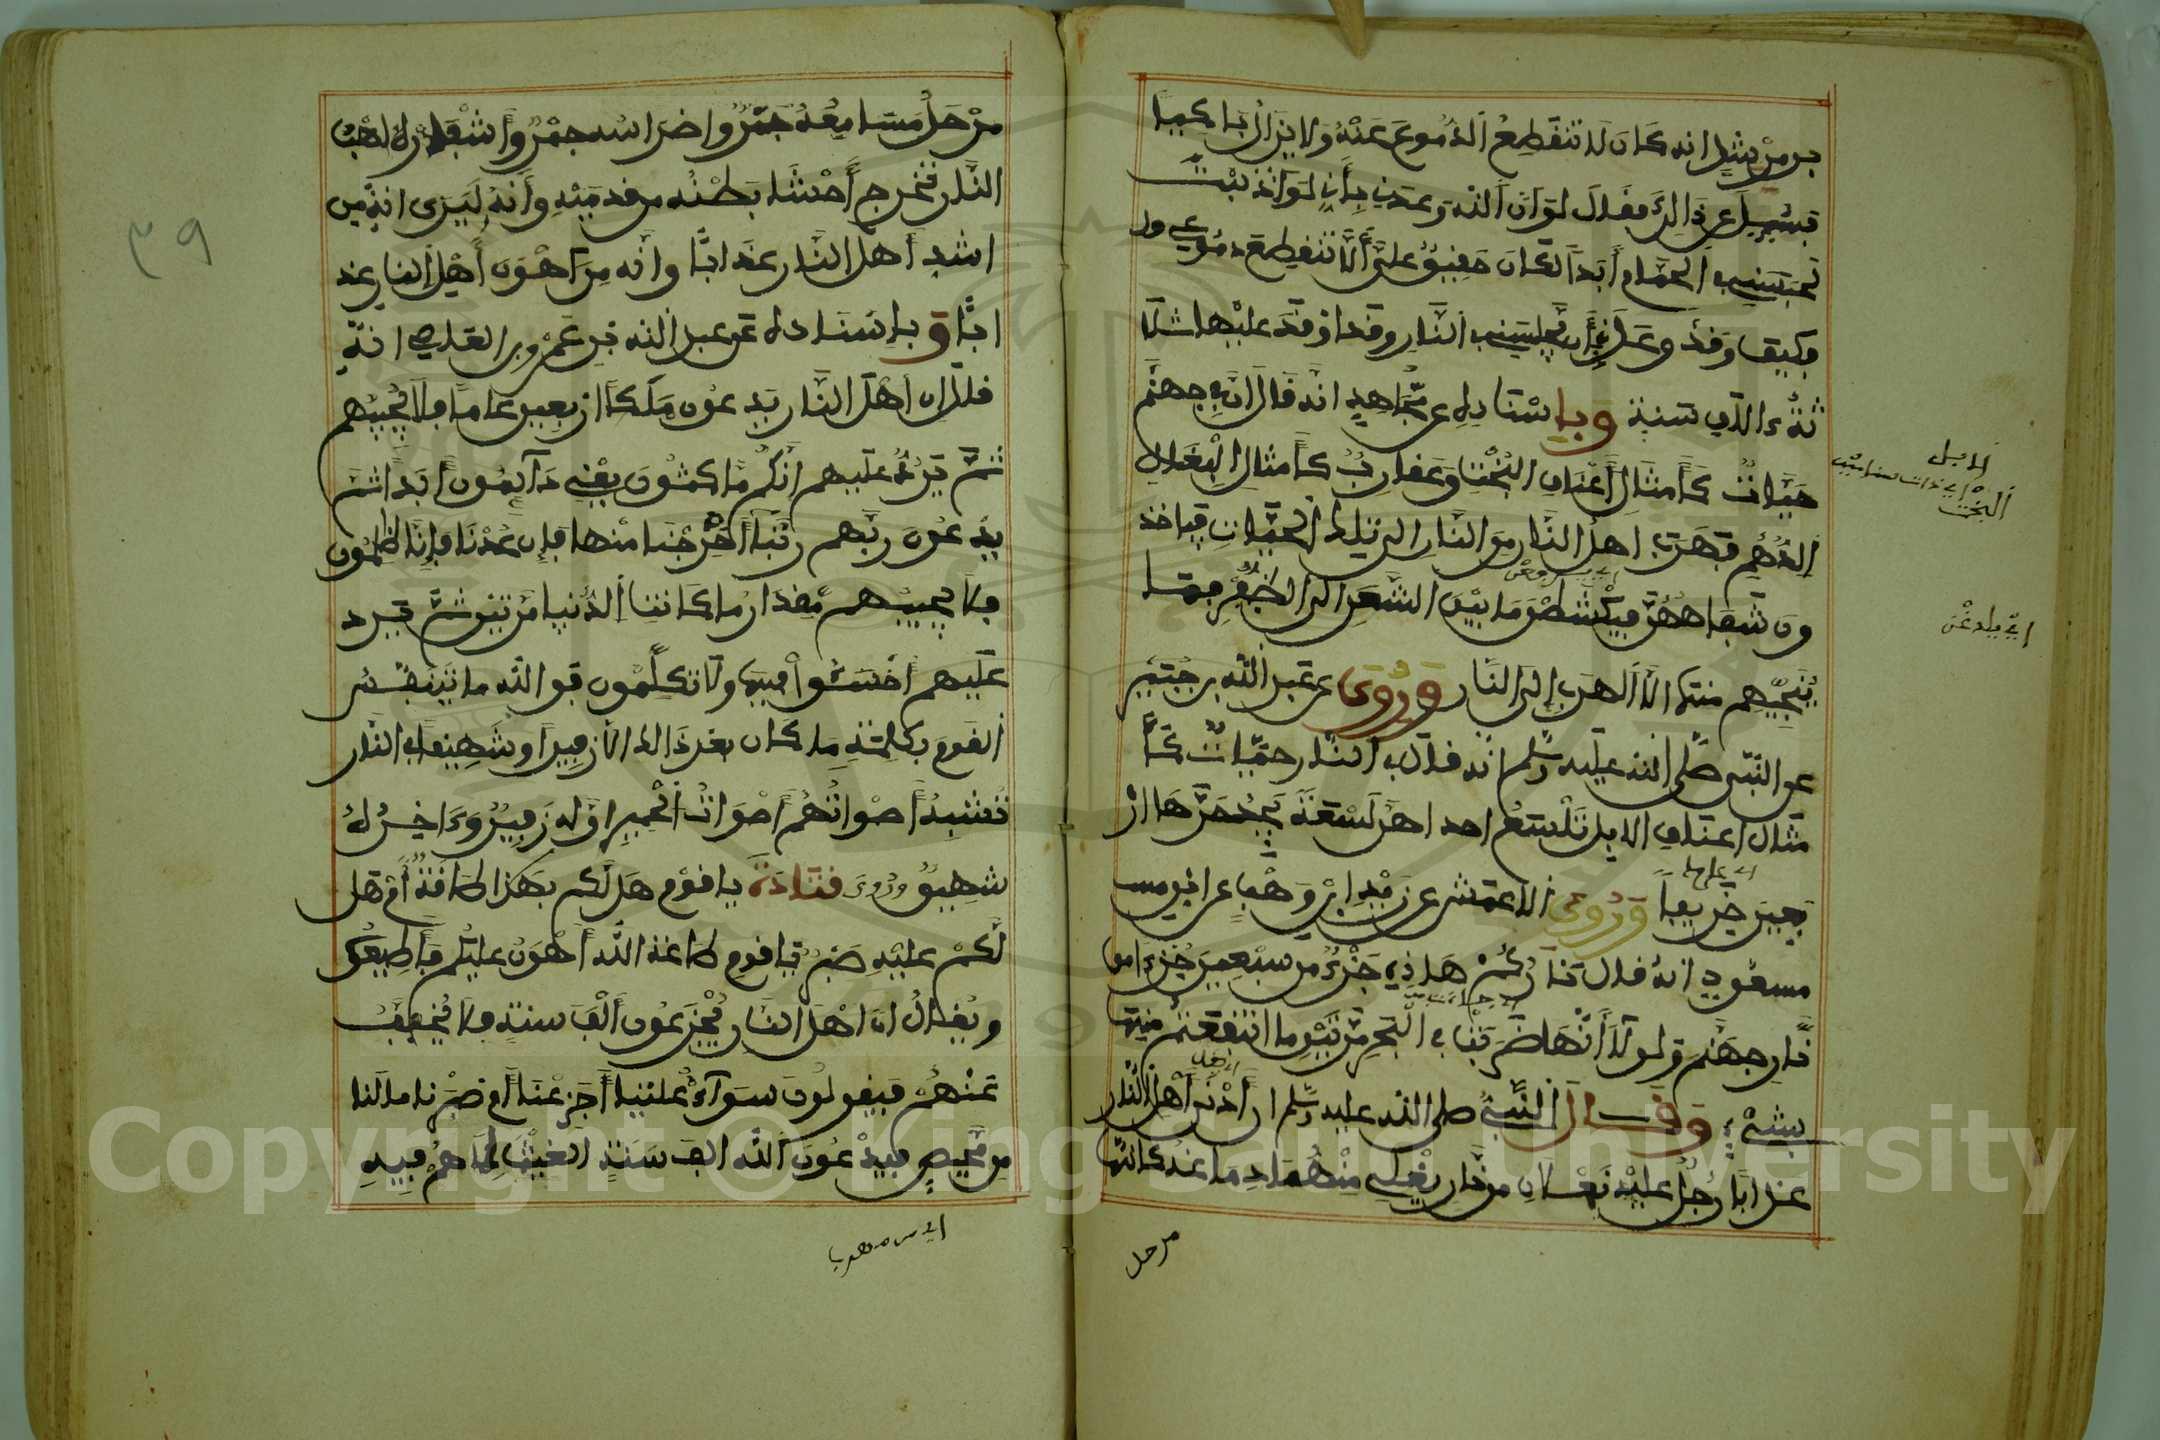 بن مرثد انه كان لا تنقطع الدموع عنه ولا يزال باكيا
فسيل عن ذالك فقال لو ان الله وعدني باني لو اذنبت
لحبسني في الحمام ابدا لكان حقيق علي ألا تنقطع دموعي ول
فكيف وقد وعدني أن يحبسني في النار وقد اوقد عليها ثلا
ثة ءالاف سنة وباسناده عن مجاهد انه قال ان في جهنم
حيات كأمثال أعناق البخت وعقارب كأمثال البغال
الدهم فيهرب اهل النار من النار الى تلك الحيات فياخذ
ون شفاههن فيكشطن ما بين الشعر الى الظفر فما
ينجيهم منها الا الهرب إلى النار وروي عن عبد الله بن جبير
عن النبي صلى الله عليه وسلم انه قال في النار حيات كأ
مثال اعناق الابل تلسع احدا هن لسعة يجد حرها ار
بعين خريفا وروى الاعمش عن زيد ابن وهب عن ابن مسـ
مسعود انه قال نا ركم هذه جزء من سبعين جزءا من
نار جهنم ولولا أنها ضربت في البحر مرتين ما انتفعتم منها
بشيء وقال النبي صلى الله عليه وسلم ان أدنى أهل النار
عذابا رجل عليه نعلان من نار يغلي منهما دماغه كانها
الابل
البخت اي ذات سنامين
اي يلدغن
مرجل
مرجل مسامعه جمر واضراسه جمر وأشفاره لهب
النار تخرج أحشا بطنه من قدميه وأنه ليرى انه من
اشد أهل النار عذابا وانه من أهون أهل النار عذ
ابا وباسناده عن عبد الله بن عمرو بن العاص انه
قال إن أهل النار يدعون ملكا اربعين عاما فلا يجيبهم
ثم يرد عليهم انكم ما كثون يعني دآيمون ابدا ثم
يدعون ربهم ربنا أخرجنا منها فإن عدنا فإنا ظلمون
فلا يجيبهم مقدار ما كانت الدنيا مرتين ثم يرد
عليهم أخسئوا فيها ولا تكلمون فو الله ما تنبس
القوم بكلمة ما كان بعد ذالك الا زفيرا وشهيقا في النار
تشبه أصواتهم أصوات الحمير اوله زفير وءاخره
شهيق وروى قتادة يا قوم هل لكم بهذا طاقة أم هل
لكم عليه صبر يا قوم طاعة الله أهون عليكم فأطيعو
ويقال ان اهل النار يجزعون ألف سنة فلا يخفف
عنهم فيقولون سوآء علينا أجزعنا أم صبرنا ما لنا
من محيص فيدعون الله الف سنة الغيث لما هم فيه
اي من مهرب
٣٩
Copyright © King Saud University